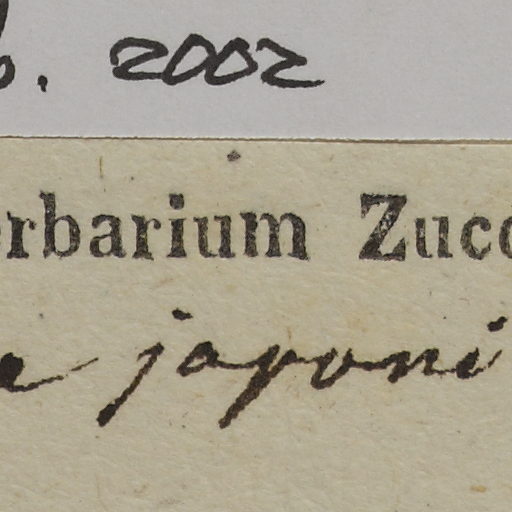 . 2002
erbarium Zucc
e japoni